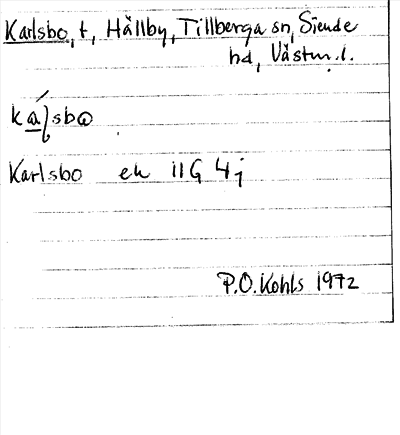 Karlsbo, t, Hällby, Tillberga sn, Siende
hd, Västm.l.
kaɭsbo
Karlsbo ek 11G 4j
P.O. Kohls 1972